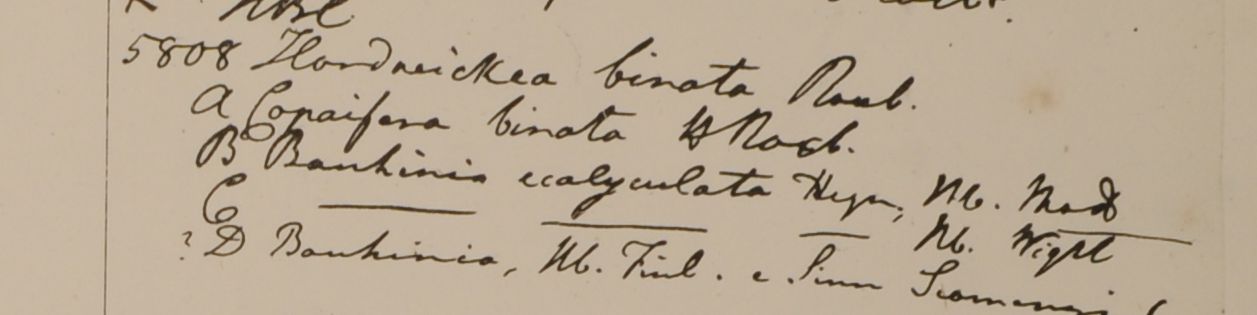 5808 Hardwickea binata Roxb.
A Copaifera binata H Roxb.
B Bauhinia ecalyculata Heyn, Hb. Mad
C Hb. Wight
? D Bauhinia, Hb. Finl. e Sinu Siamensi